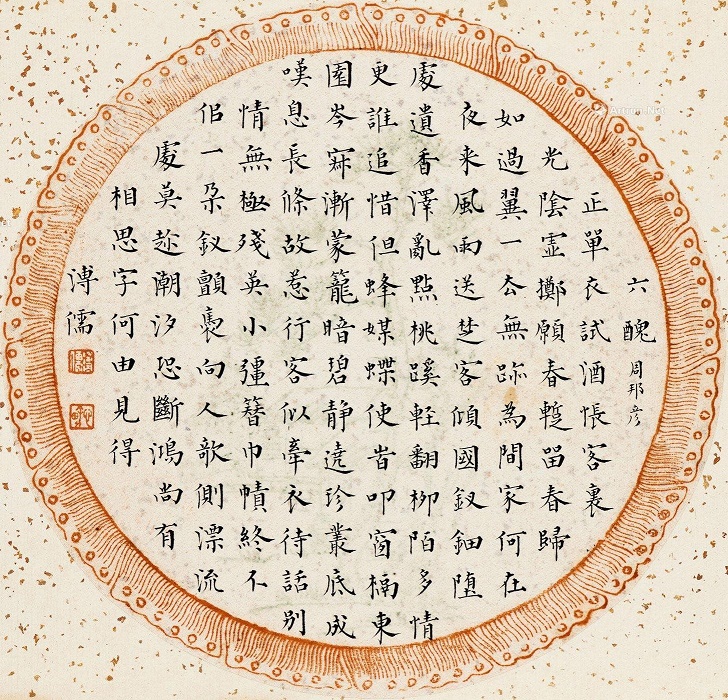 六醜 周邦彦
正單衣試酒悵客裏
光陰虛擲願春蹔留春歸
如過翼一去無跡為問家何在
夜来風雨送楚客傾國釵鈿堕
處遺香澤亂點桃蹊輕翻柳陌多情
更誰追惜但蜂媒蝶使旹叩窗槅東
園岑寂漸蒙籠暗碧静遶珍叢底成
嘆息長條故惹行客似牽衣待話别
情無極殘英小彊簪巾幘終不
佀一朵釵顫褭向人欹側漂流
處莫趂潮汐恐斷鴻尚有
相思字何由見得
溥儒
Artron.Net